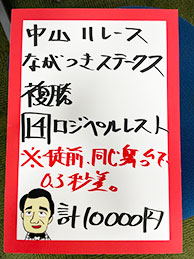 中山11レース
ながつきステークス
複勝
14 ロジペルレスト
※徒前、同じ舞台で
0.3秒差。
計10000円